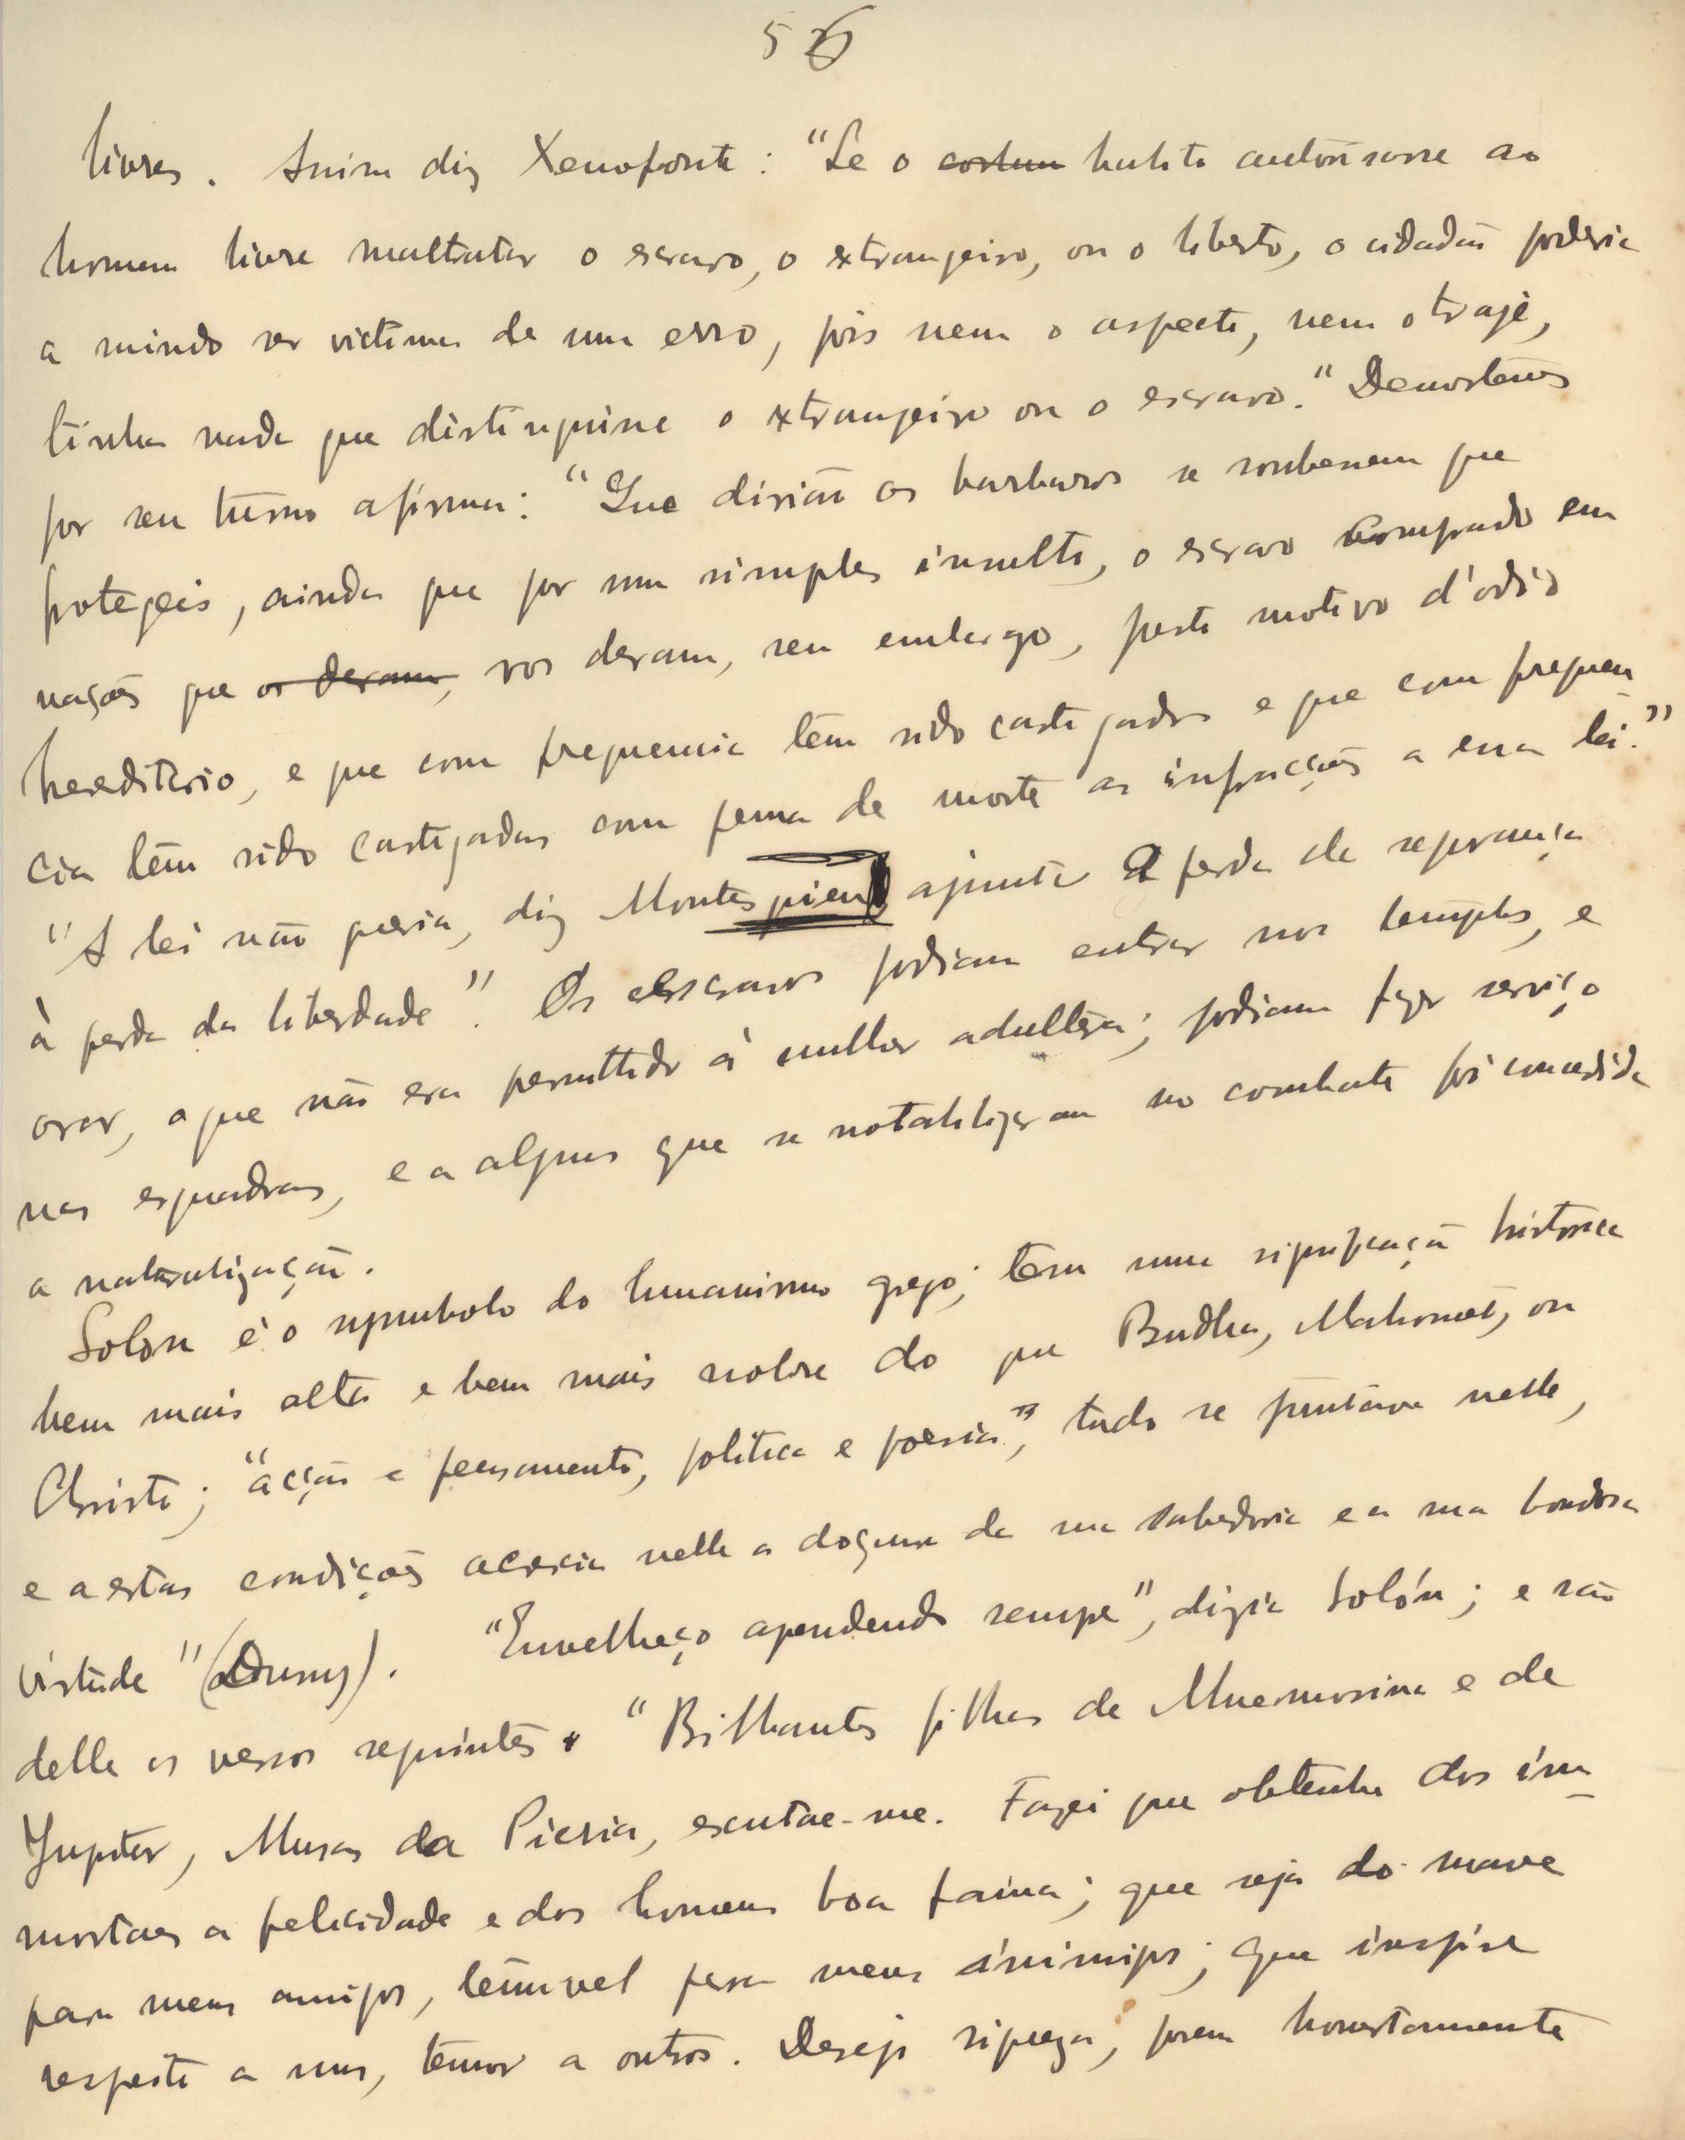 56
livres. Assim diz Xenofonte: "Se o costum habito autorisasse ao
homem livre maltratar o escravo, o extrangeiro, ou o liberto, o cidadão poderia
a miudo ser victima de um erro, pois nem o aspecto, nem o traje,
tinha nada que distinguisse o extrangeiro ou o escravo." Demostenes
por seu turno afirma: "Que dirião os barbaros se soubessem que
protegeis, ainda que por um simples insulto, o escravo comprado em
nações que os deram, vos deram, sem embargo, justo motivo d'odio
hereditario, e que com frequencia têm sido castigados e que com frequen
cia têm sido castigadas com pena de morte as infracções a essa lei."
"A lei não queria, diz Montesquieu ajuntar a perda da segurança
à perda da liberdade". Os escravos podiam entrar nos templos, e
orar, o que não era permittido à mulher adultera; podiam fazer serviço
nas esquadras, e a alguns que se notabilizaram no combate foi concedida
a naturalização.
Solon é o symbolo do humanismo grego; tem uma significação historica
bem mais alta e bem mais nobre do que Budha, Mahomet, ou
Christo; "acção e pensamento, politica e poesia", tudo se juntava nelle,
e a estas condições acrescia nelle a doçura da sua sabedoria e a sua bondosa
virtude" (Duruy). "Envelheço aprendendo sempre", dizia Solón; e são
delle os versos seguintes. "Brilhantes filhas de Mnemosina e de
Jupiter, Musas da Pieria, escutae-me. Fazei que obtenha dos im-
mortaes a felicidade e dos homens boa fama; que seja do suave
para meus amigos, temivel para meus inimigos; que inspire
respeito a uns, temor a outros. Desejo riqueza, porem honestamente